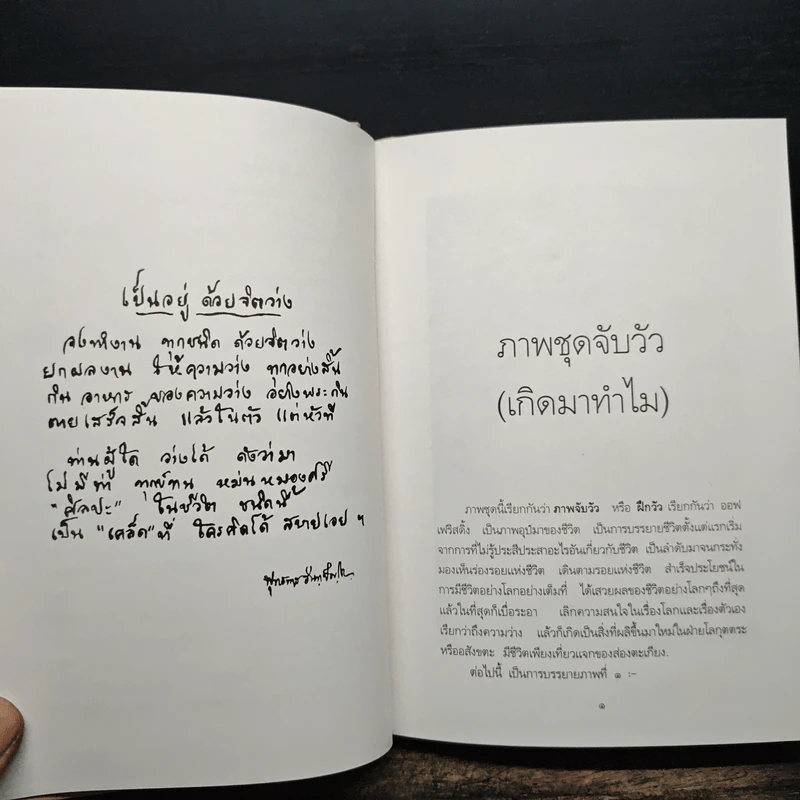 เป็นอยู่ ด้วยจิตว่าง
จงทำงาน ทุกชนิด ด้วยจิตว่าง
ยกผลงาน ให้ความว่าง ทุกอย่างสิ้น
กินอาหาร ของความว่าง อย่างพระกิน
ตายเสร็จสิ้น แล้วในตัว แต่หัวที
ท่านผู้ใด ว่างได้ ดังว่ามา
ไม่มีท่า ทุกข์ทน หม่นหมองศรี
"ศิลปะ" ในชีวิต ชนิดนี้
เป็น "เคล็ด" ที่ ใครคิดได้ สบายเอย ฯ
พุทธทาส อินฺทปญฺโญ
ภาพชุดจับวัว
(เกิดมาทำไม)
ภาพชุดนี้เรียกกันว่า ภาพจับวัว หรือ ฝึกวัว เรียกกันว่า ออฟ
เฟริสดิ้ง เป็นภาพอุปมาของชีวิต เป็นการบรรยายชีวิตตั้งแต่แรกเริ่ม
จากการที่ไม่รู้ประสีประสาอะไรอันเกี่ยวกับชีวิต เป็นลำดับมาจนกระทั่ง
มองเห็นร่องรอยแห่งชีวิต เดินตามรอยแห่งชีวิต สำเร็จประโยชน์ใน
การมีชีวิตอย่างโลกอย่างเต็มที่ ได้เสวยผลของชีวิตอย่างโลกๆถึงที่สุด
แล้วในที่สุดก็เบื่อระอา เลิกความสนใจในเรื่องโลกและเรื่องตัวเอง
เรียกว่าถึงความว่าง แล้วก็เกิดเป็นสิ่งที่ผลิขึ้นมาใหม่ในฝ่ายโลกุตตระ
หรืออสังขตะ มีชีวิตเพียงเที่ยวแจกของส่องตะเกียง.
ต่อไปนี้ เป็นการบรรยายภาพที่ ๑ :-
๑